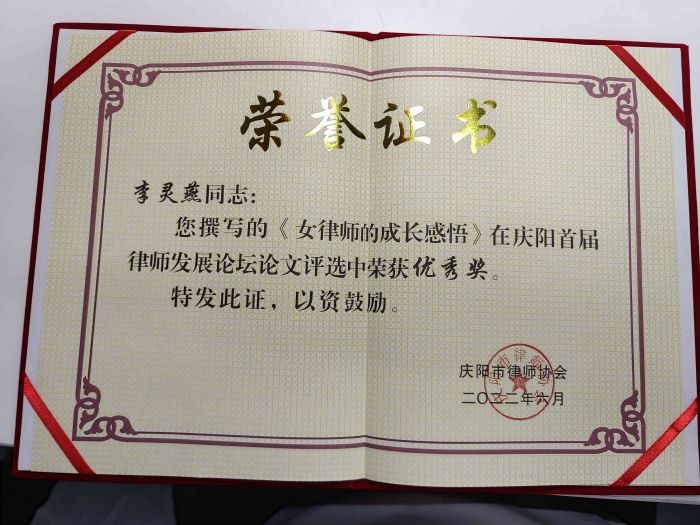 荣誉证书
李灵燕同志:
您撰写的《女律师的成长感悟》在庆阳首届
律师发展论坛论文评选中荣获优秀奖。
特发此证，以资鼓励。
庆阳市律师协会
二〇二二年六月
庆阳市律师协会